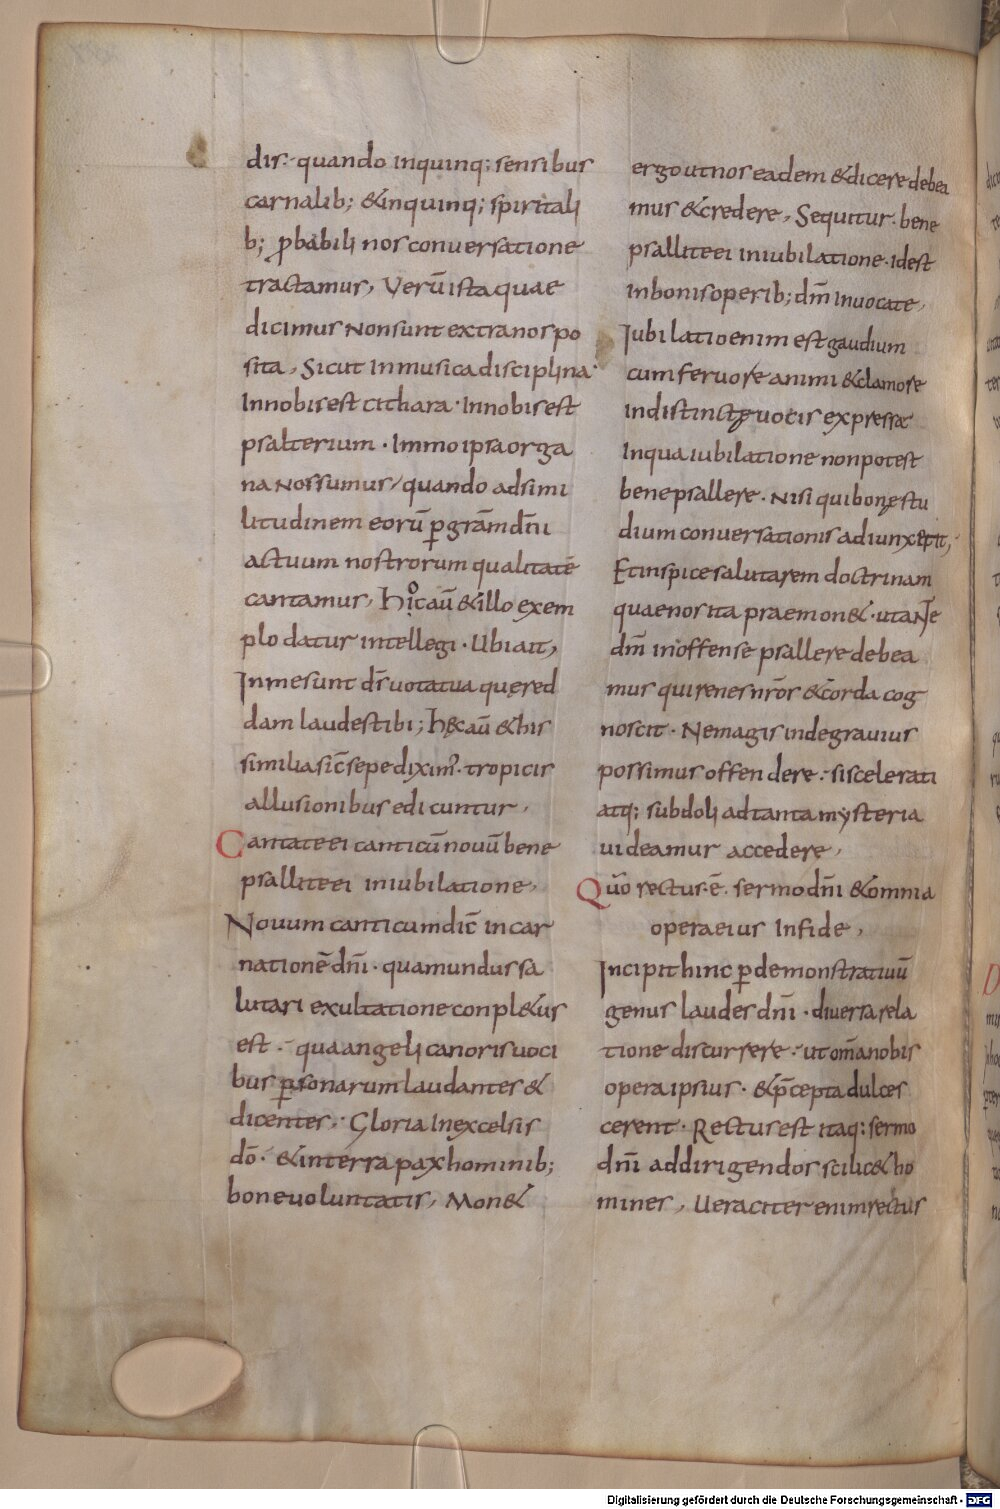 dis· quando inquinq; sensibus
carnalib; & inquinq; spiritali
b; ꝓbabili nos conuersatione
tractamus, Verū ista quae
dicimus Non sunt extra nos po
sita, Sicut In musica disciplina·
In nobis est cithara· In nobis est
psalterium· Immo ipsa orga
na Nos sumus/ quando ad simi
litudinem eorū ꝑ grām dn̄i
actuum nostrorum qualitatē
cantamus, hicaū & illo exem
plo datur intellegi· Ubi ait,
In me sunt ds̄ uota tua quę red
dam laudes tibi; hęcaū & his
similia sic̄ sepe diximꝰ· tropicis
allusionibus edicuntur,
Cantate ei canticū nouū bene
psallite ei in iubilatione,
Nouum canticum dic̄ incar
nationē dn̄i· qua mundus sa
lutari exultatione conpl&us
est· qua angeli canoris uoci
bus ꝑsonarum laudantes &
dicentes· Gloria In excelsis
dō· & in terra pax hominib;
bone uoluntatis, Mon&
ergo ut nos eadem & dicere debea
mus & credere, Sequitur· bene
psallite ei in iubilatione· Idest
in bonis operib; dn̄m Inuocate,
Iubilatio enim est gaudium
cum feruore animi & clamore
indistinctę uocis expressa
In qua iubilatione non potest
bene psallere· Nisi qui bonę stu
dium conuersationis adiunxerit,
Et inspice salutarem doctrinam
quae nos ita praemon&· ut ante
dn̄m inoffense psallere debea
mus qui renes nr̄os & corda cog
noscit· Ne magis inde grauius
possimus offendere· si scelerati
atq; subdoli ad tanta mysteria
uideamur accedere,
Qūo rectus·ē· sermo dn̄i & omnia
opera eius In fide,
Incipit hinc ꝑ demonstratiuū
genus laudes dn̄i· diuersa rela
tione discurrere· ut om̄a nobis
opera ipsius· & p̄cepta dulces
cerent· Rectus est itaq; sermo
dn̄i ad dirigendos scilic& ho
mines, Ueraciter enim rectus
Digitalisierung gefördert durch die Deutsche Forschungsgemeinschaft - DFG